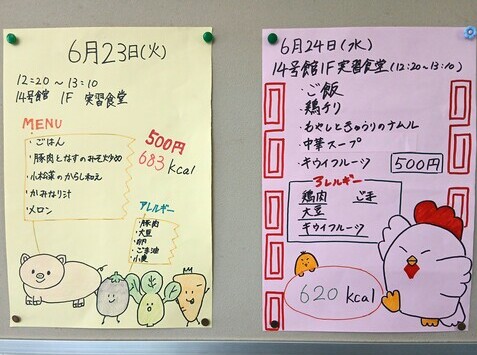 6月23日(火)
12:20~13:10
14号館 1F 実習食堂
MENU
・ごはん
・豚肉となすのみそ炒め
・小松菜のからし和え
・かみなり汁
・メロン
500円
683 kcal
アレルギー
・豚肉
・大豆
・卵
・ごま油
・小麦
6月24日(水)
14号館1F 実習食堂(12:20~13:10)
・ご飯
・鶏チリ
・もやしときゅうりのナムル
・中華スープ
・キウイフルーツ
500円
アレルギー
鶏肉 ごま
大豆
キウイフルーツ
620 kcal